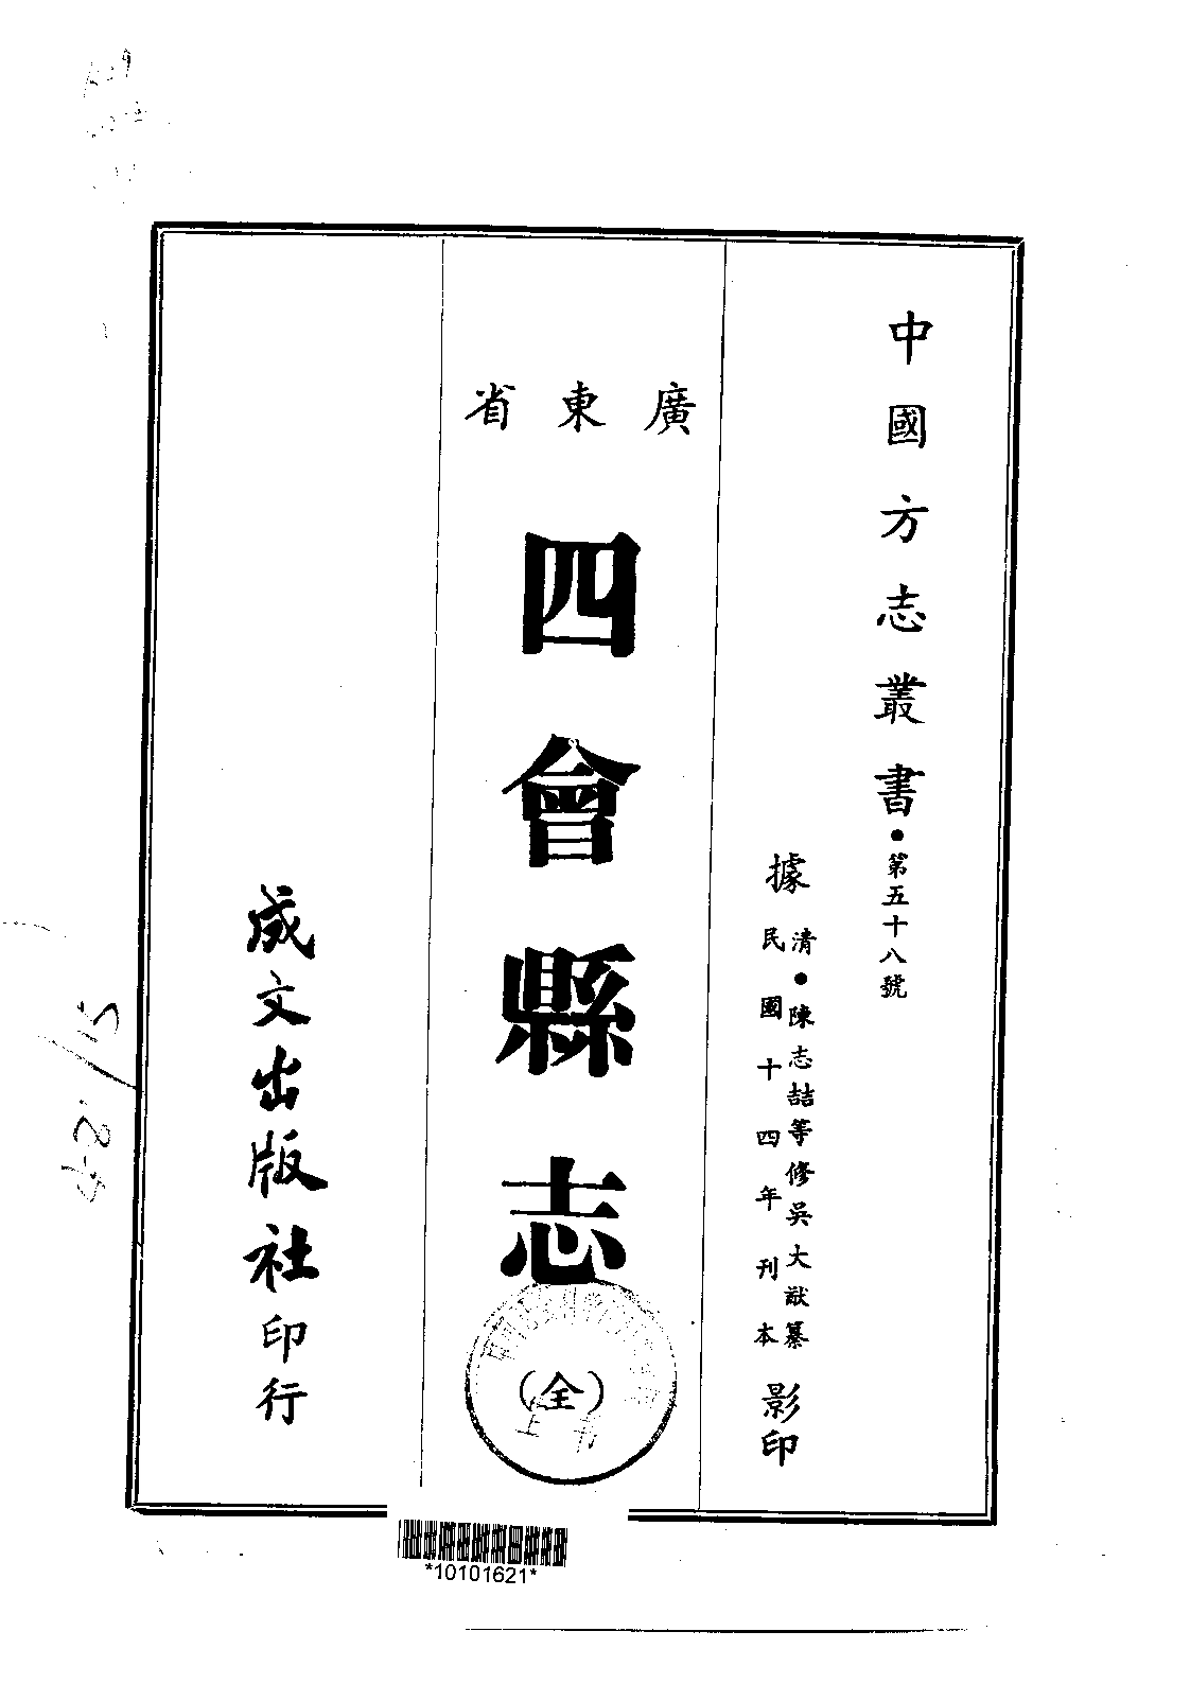 中國方志叢書●第五十八號
據
清●陳志喆等修吳大猷纂
民國十四年刊本
影印
廣東省
四會縣志
(全)
成文出版社印行
*10101621*